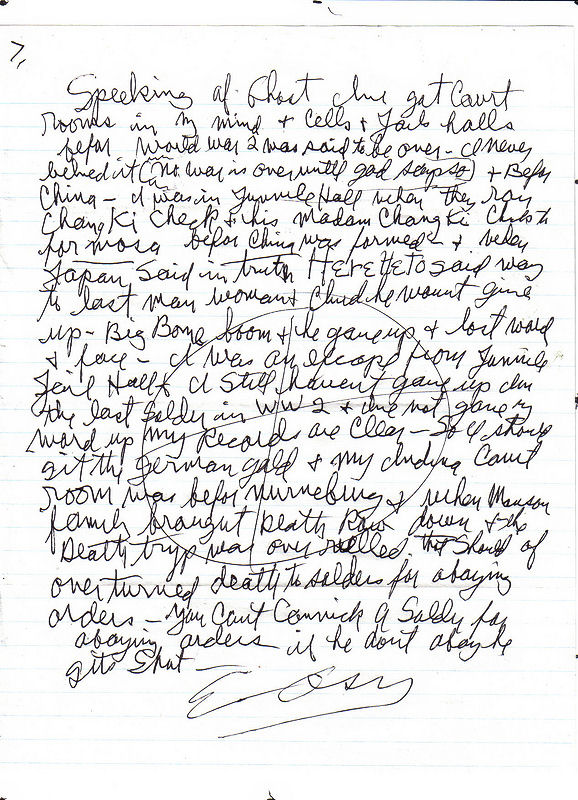 7,
Speeking of Ghost Ive got Court
rooms in my mind + Cells + Jail halls
befor World war 2 was said to be over - I never
belived it (no war is over until god says so) + Befor
China - I was in Juvnile Hall when they ran
Chang Ki Check + his Madam Chang Ki Check to
formosa befor China was formed + when
Japan said in truth HereHeto said war
to last man woman + Child he wount give
up - Big Bome boom + he gave up + lost word
+ face - I was an escape from Juvnile
Jail Hall + I still haven't gave up Im
the last Soldy in WW2 + Ive not gave my
word up my Records are Clear - So I should
git the German gold + my Indiana Court
room was befor Nurnebing + when Manson
family braught Death Row down + the
Death tryp was over rulled that Should of
over turned death to solders for abaying
orders - You Cant Convick a Soldy for
abaying orders if he dont abay he
gits Shot -